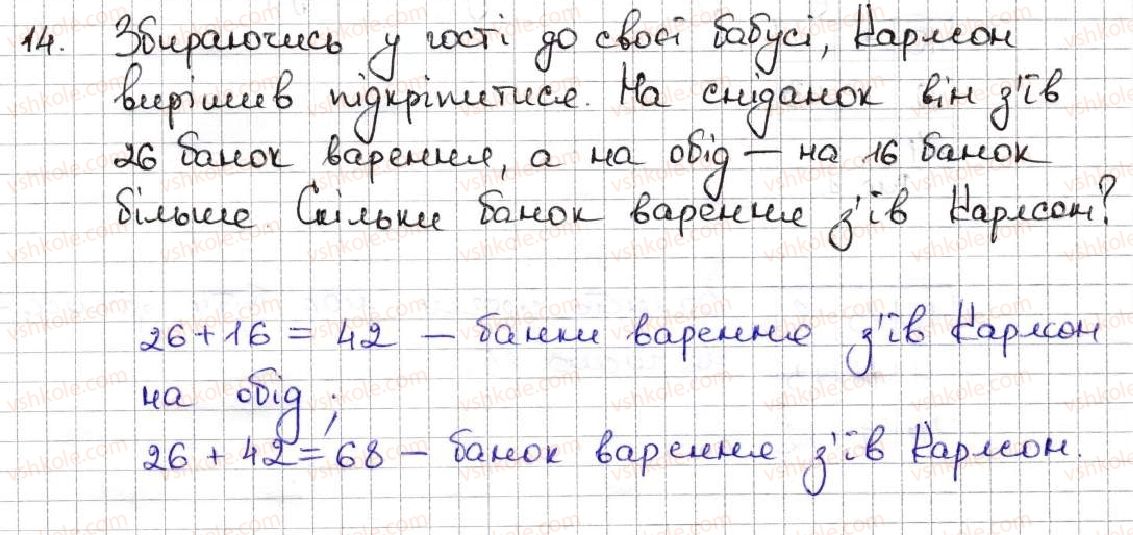 14. Збираючись у гості до своєї бабусі, Карлсон
вирішив підкріпитися. На сніданок він з'їв
26 банок варення, а на обід — на 16 банок
більше. Скільки банок варення з'їв Карлсон?
26 + 16 = 42 — банки варення з'їв Карлсон
на обід;
26 + 42 = 68 — банок варення з'їв Карлсон.